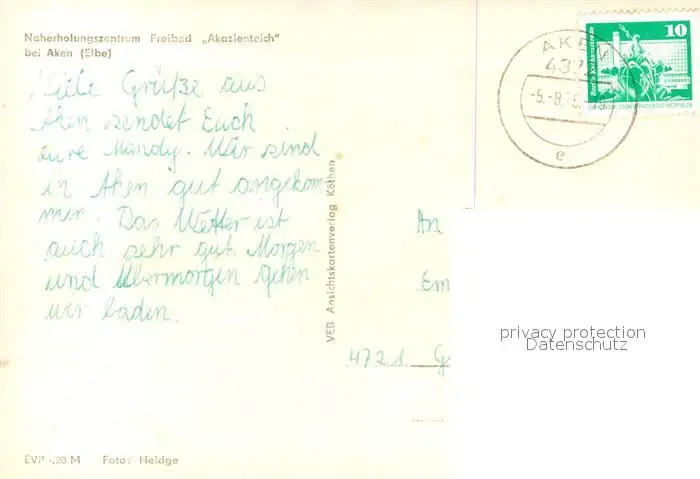 Naherholungszentrum Freibad „Akazienteich"
bei Aken (Elbe)
Viele Grüße aus
Aken sendet Euch
eure Mandy. Wir sind
in Aken gut angekom
men. Das Wetter ist
auch sehr gut. Morgen
und Übermorgen gehen
wir baden.
VEB Ansichtskartenverlag Köthen
AKEN
-5.-8.
e
10
An
Em
4721 G
privacy protection
Datenschutz
EVP -,20 M Foto: Heldge